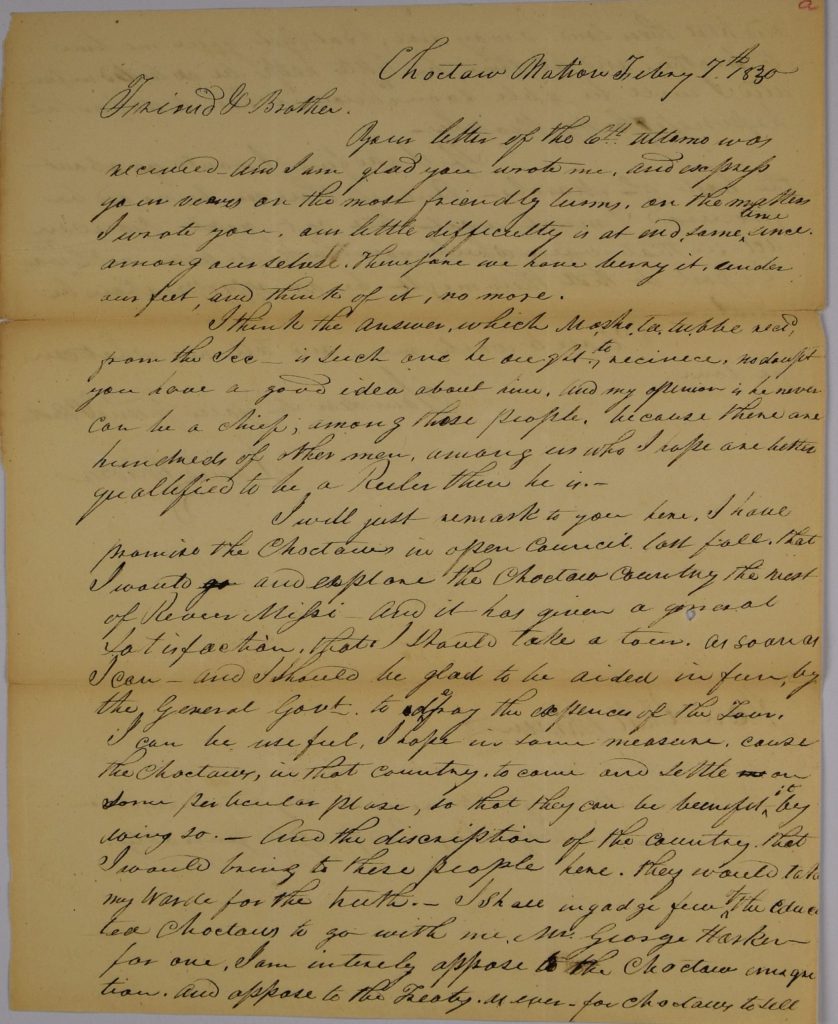 a
Choctaw Nation Febry 7th 1830
Friend & Brother.
Your letter of the 6th ultamo was
received – and I am glad you wrote me, and express
your views on the most friendly turms, on the matters
I wrote you. our little difficulty is at end, some time since.
among ourselves. therefore we have berry it, under
our feet, and think of it, no more.
I think the answer, which Mosho,ta,tubbe recd,
from the Sec – is such one he ought to recivece, no doupt
you have a good idea about him, and my opinion is he never
can be a chief; among these people, because there are
hundreds of other men, among us who I rope are better
qualified to be a Ruler then he is. –
I will just remark to you here, I have
promise the Choctaws in open Council last fall, that
I would go and explore the Choctaw Country the west
of River Missi – and it has given a general
satisfaction, that I should take a tour. as soon as
I can – and I should be glad to be aided in fun, by
the General Govt. to defray the expences of the Tour.
I can be useful, I hope in some measure, cause
the Choctaws, in that country, to come and settle on
some perticular plase, so that they can be beenifit it by
doing so. – And the discription of the country, that
I would bring to these people here. they would take
my Warde for the truth. – I shall ingadge few of the educa
ted Choctaws to go with me, Mr. George Harken –
for one, I am intirely appose to the Choctaw emigra
tion. and appose to the Treaty. as ever – for Choctaws to sell